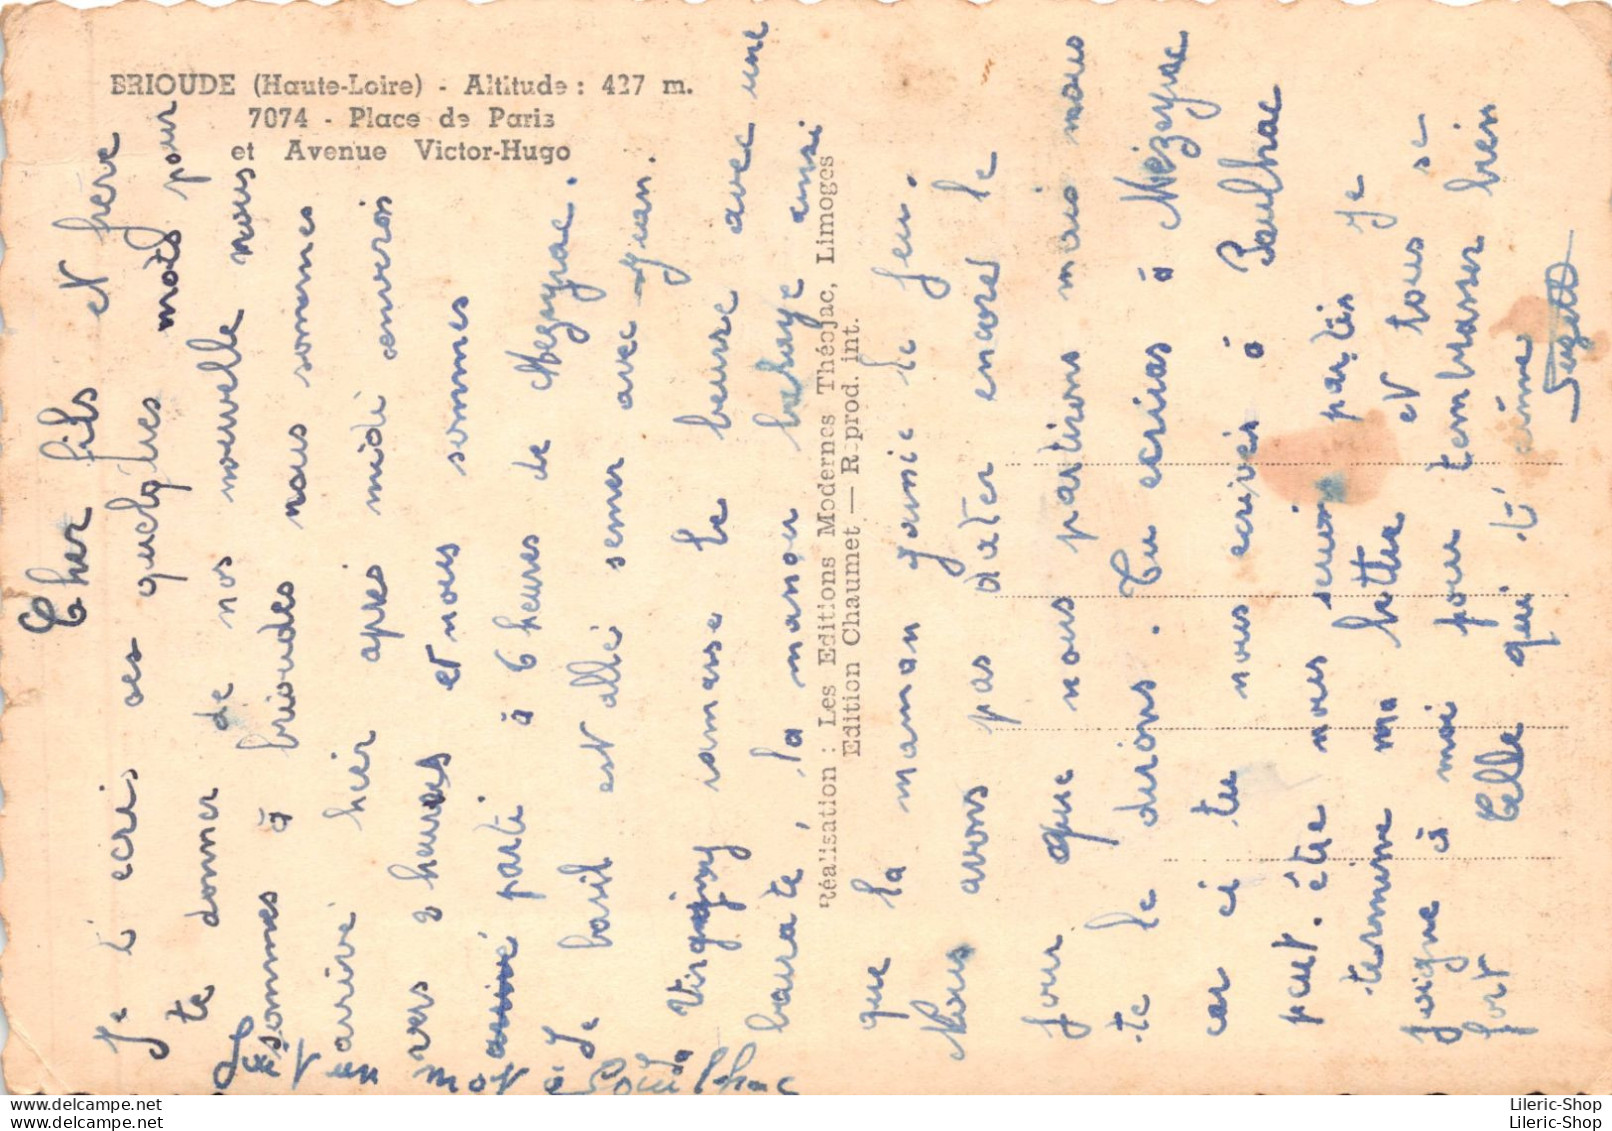 BRIOUDE (Haute-Loire) - Altitude : 427 m.
7074 - Place de Paris
et Avenue Victor-Hugo
Réalisation : Les Editions Modernes Théojac, Limoges
Edition Chaumet — Reprod. int.
Cher fils et frère
Je t'écris ces quelques mots pour
te donner de nos nouvelle nous
sommes à brioudes nous sommes
arrivé hier apres midi environ
vers 2 heures et nous sommes
parti à 6 heures de Mezeyrac.
Le basil est allé semer avec Jean.
Virginy ramase le beurre avec une
barate, la manou balaye ainsi
que la maman Jamie le feu.
Nous avons pas dater encore le
jour que nous partions mais nous
te le dirons. Tu ecriras à Mézeyrac
car ci tu nous ecrives à Paulhac
peut-être nous seront partis je
termine ma lettre et tous se
joigne à moi pour t'embrasser bien
fort Celle qui t'aime
Suzette
Et un mot à Paulhac
Lileric-Shop
Lileric-Shop
Lileric-Shop
Lileric-Shop